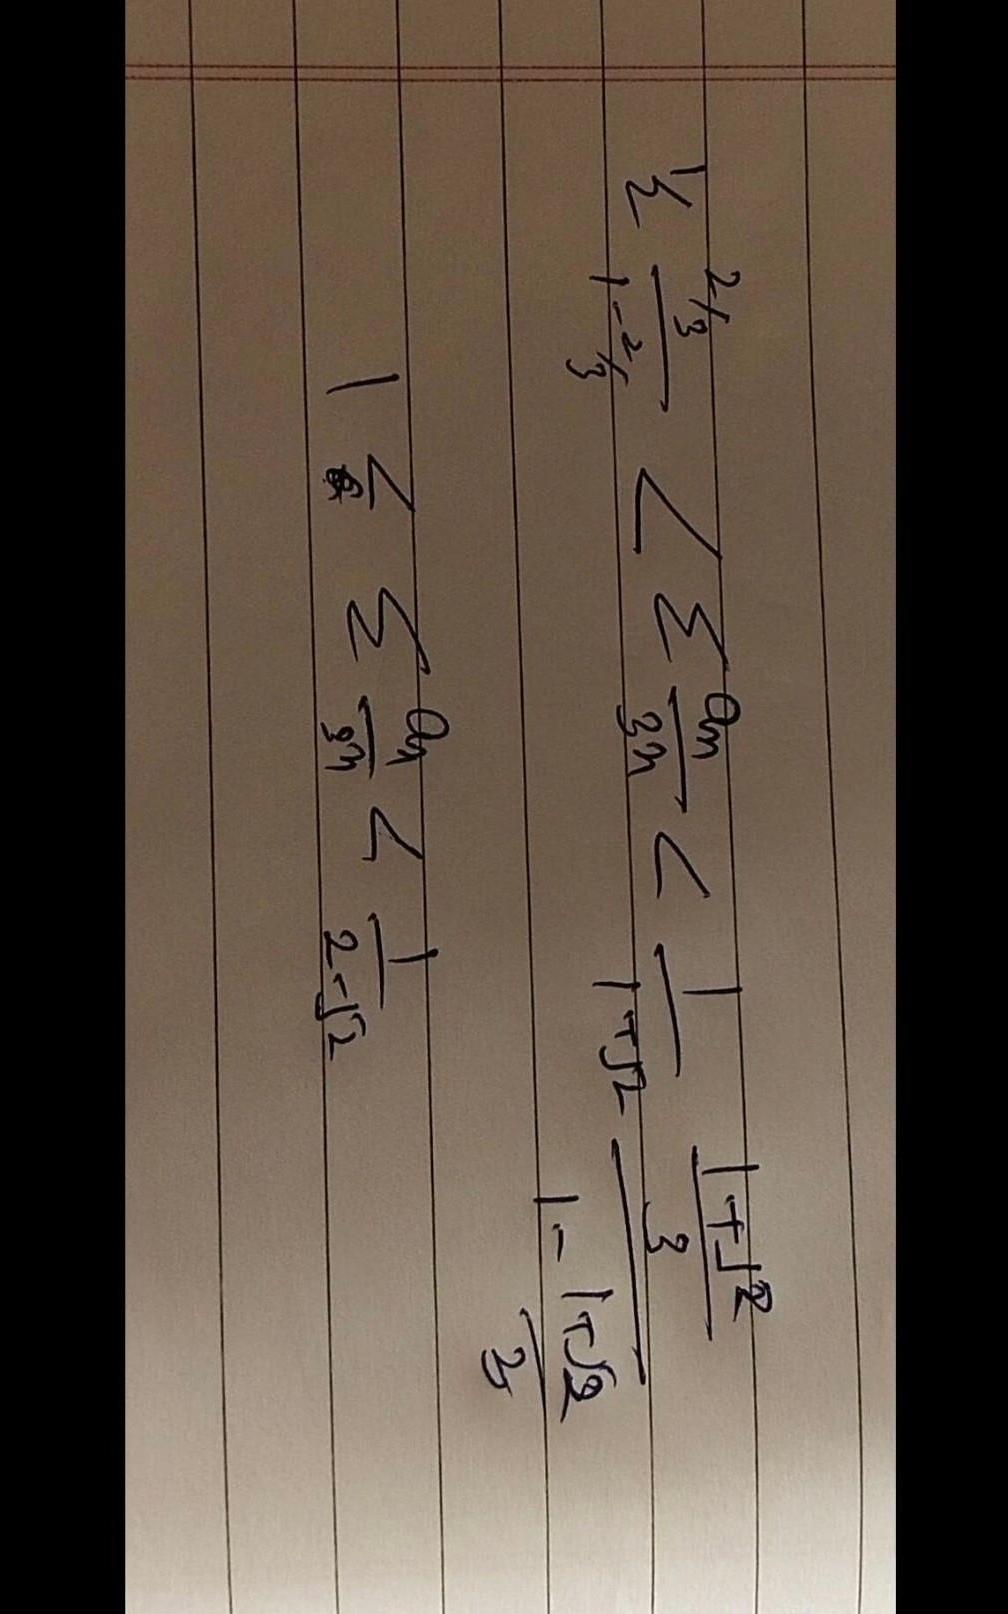 ½ (2/3)/(1-2/3) < Σ aₙ/3ⁿ < 1/(1+√2) ((1+√2)/3)/(1-(1+√2)/3)
1 ≤ Σ aₙ/3ⁿ < 1/(2-√2)